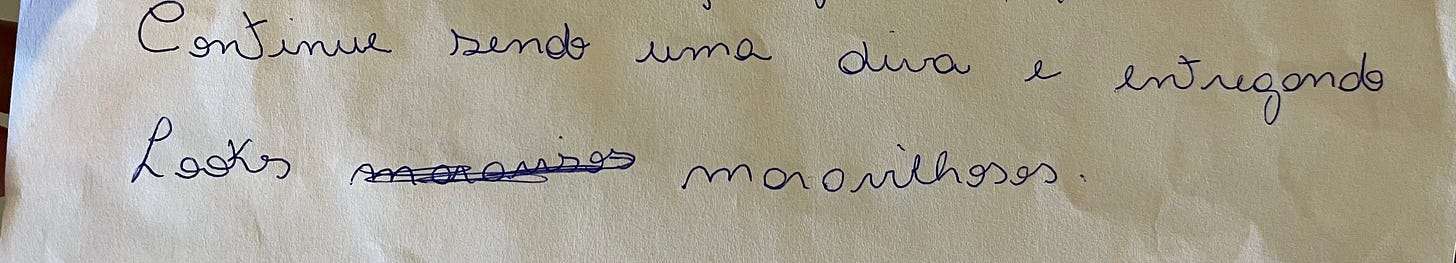 Continue sendo uma diva e entregando
Looks maravilhosos.